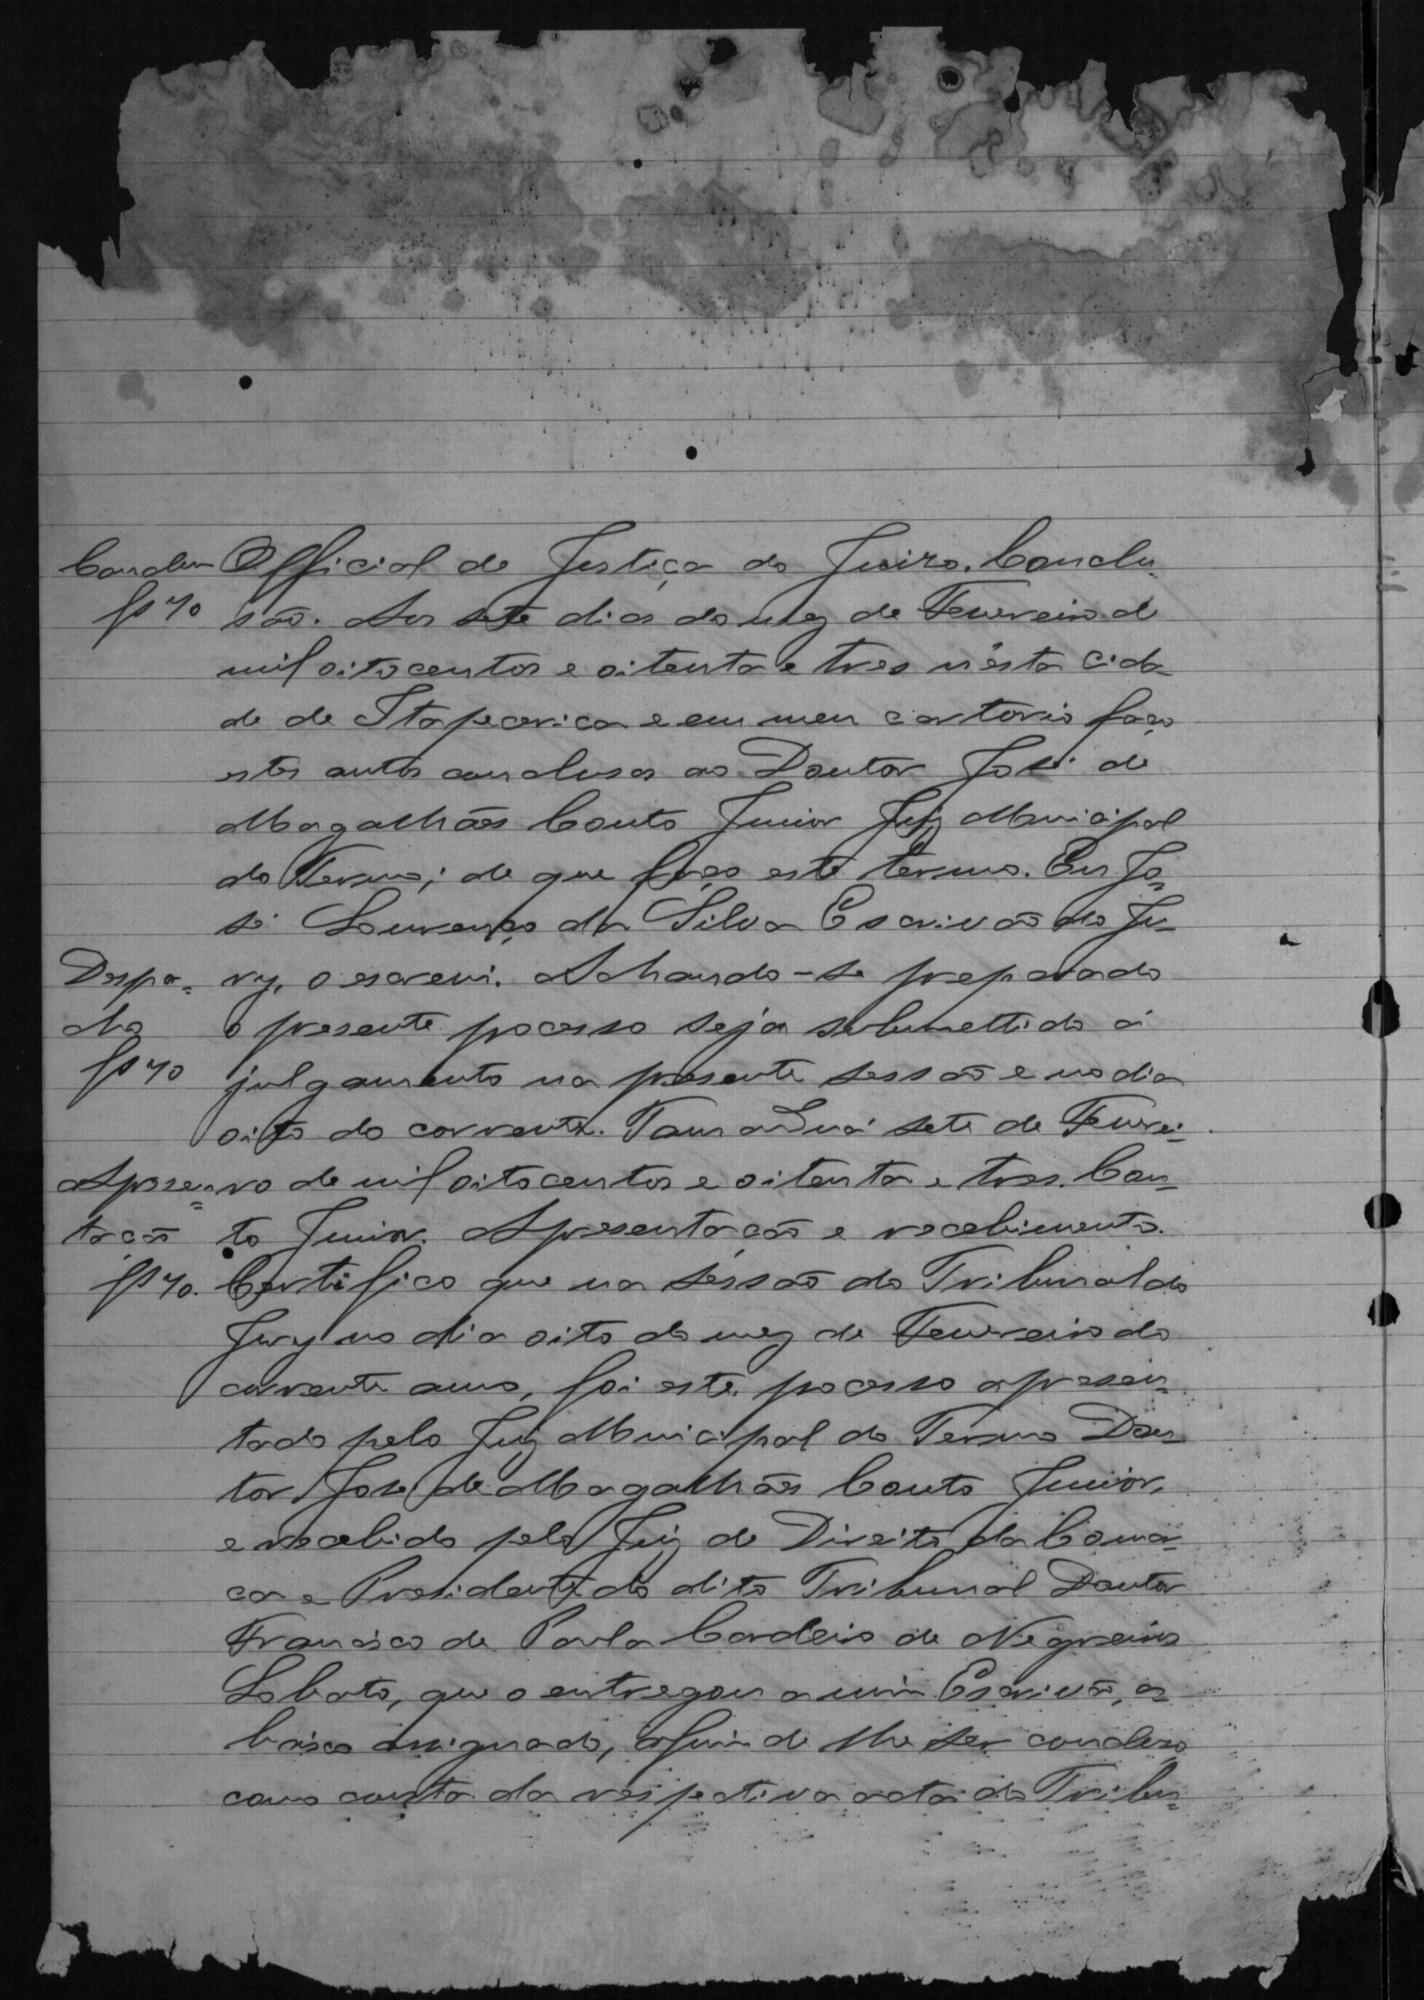 Conclu- Official de Justiça do Juizo. Conclu-
fs 70 são. Aos sete dias do mez de Fevereiro de
mil oito centos e oitenta e tres n'ésta cida-
de de Itapecerica e em meu cartorio faço
estes autos conclusos ao Doutor José de
Magalhães Couto Junior Juiz Municipal
do Termo; de que faço este termo. Eu Jo-
sé Lourenço da Silva Escrivão do Ju-
Despa- ry, o escrevi. Achando-se preparado
cho o presente pocesso seja submettido á
fs 70 julgamento na presente sessão e no dia
oito do corrente. Tamanduá sete de Feverei-
Apresen- ro de mil oito centos e oitenta e tres. Cou-
tação to Junior. Apresentação e recebimento.
fs 70. Certifico que na sessão do Tribunal do
Jury no dia oito do mez de Fevereiro do
corrente anno, foi este pocesso apresen-
tado pelo Juiz Municipal do Termo Dou-
tor José de Magalhães Couto Junior,
e recebido pelo Juiz de Direito da Comar-
ca e Presidente do dito Tribunal Doutor
Francisco de Paula Cordeiro de Negreiros
Lobato, que o entregou a mim Escrivão, a-
baixo assignado, afim de lhe ser concluso
como consta da respectiva acta do Tribu-